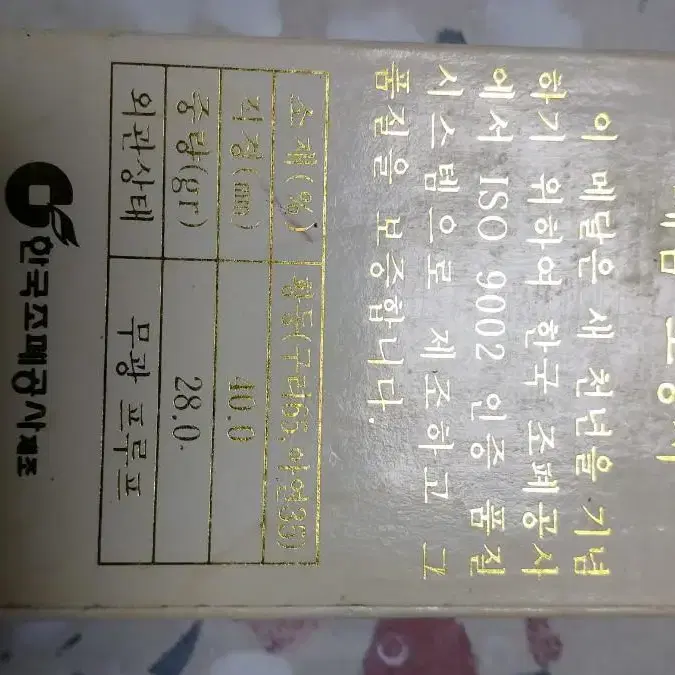 이 메달은 새 천년을 기념
하기 위하여 한국 조폐공사
에서 ISO 9002 인증 품질
시스템으로 제조하고 그
품질을 보증합니다.
소재(%) 황동(구리65, 아연35)
직경(mm) 40.0
중량(gr) 28.0
외관상태 무광 프루프
한국조폐공사 제조